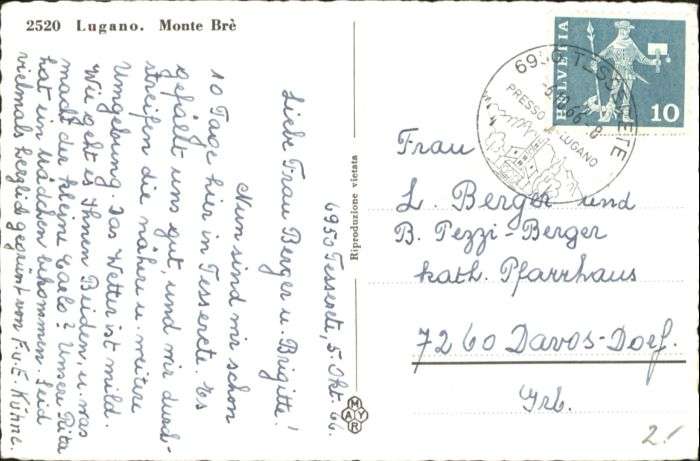 2520 Lugano. Monte Brè
6950 Tesserete, 5. Okt. 66.
Liebe Frau Berger u. Brigitte!
Nun sind wir schon
10 Tage hier in Tesserete. Es
gefällt uns gut, und wir durch-
streifen die nähere u. weitere
Umgebung. Das Wetter ist mild.
Wie geht es Ihnen Beiden, u. was
macht der kleine Carlo? Unsere Rita
hat ein Mädchen bekommen. Seid
vielmals herzlich gegrüsst von F. u. E. Kühne.
Riproduzione vietata
MAYR
HELVETIA
10
6950 TESSERETE
-6.10.66-8
PRESSO LUGANO
Frau
L. Berger und
B. Pezzi-Berger
kath. Pfarrhaus
7260 Davos-Dorf.
Grb.
2.-